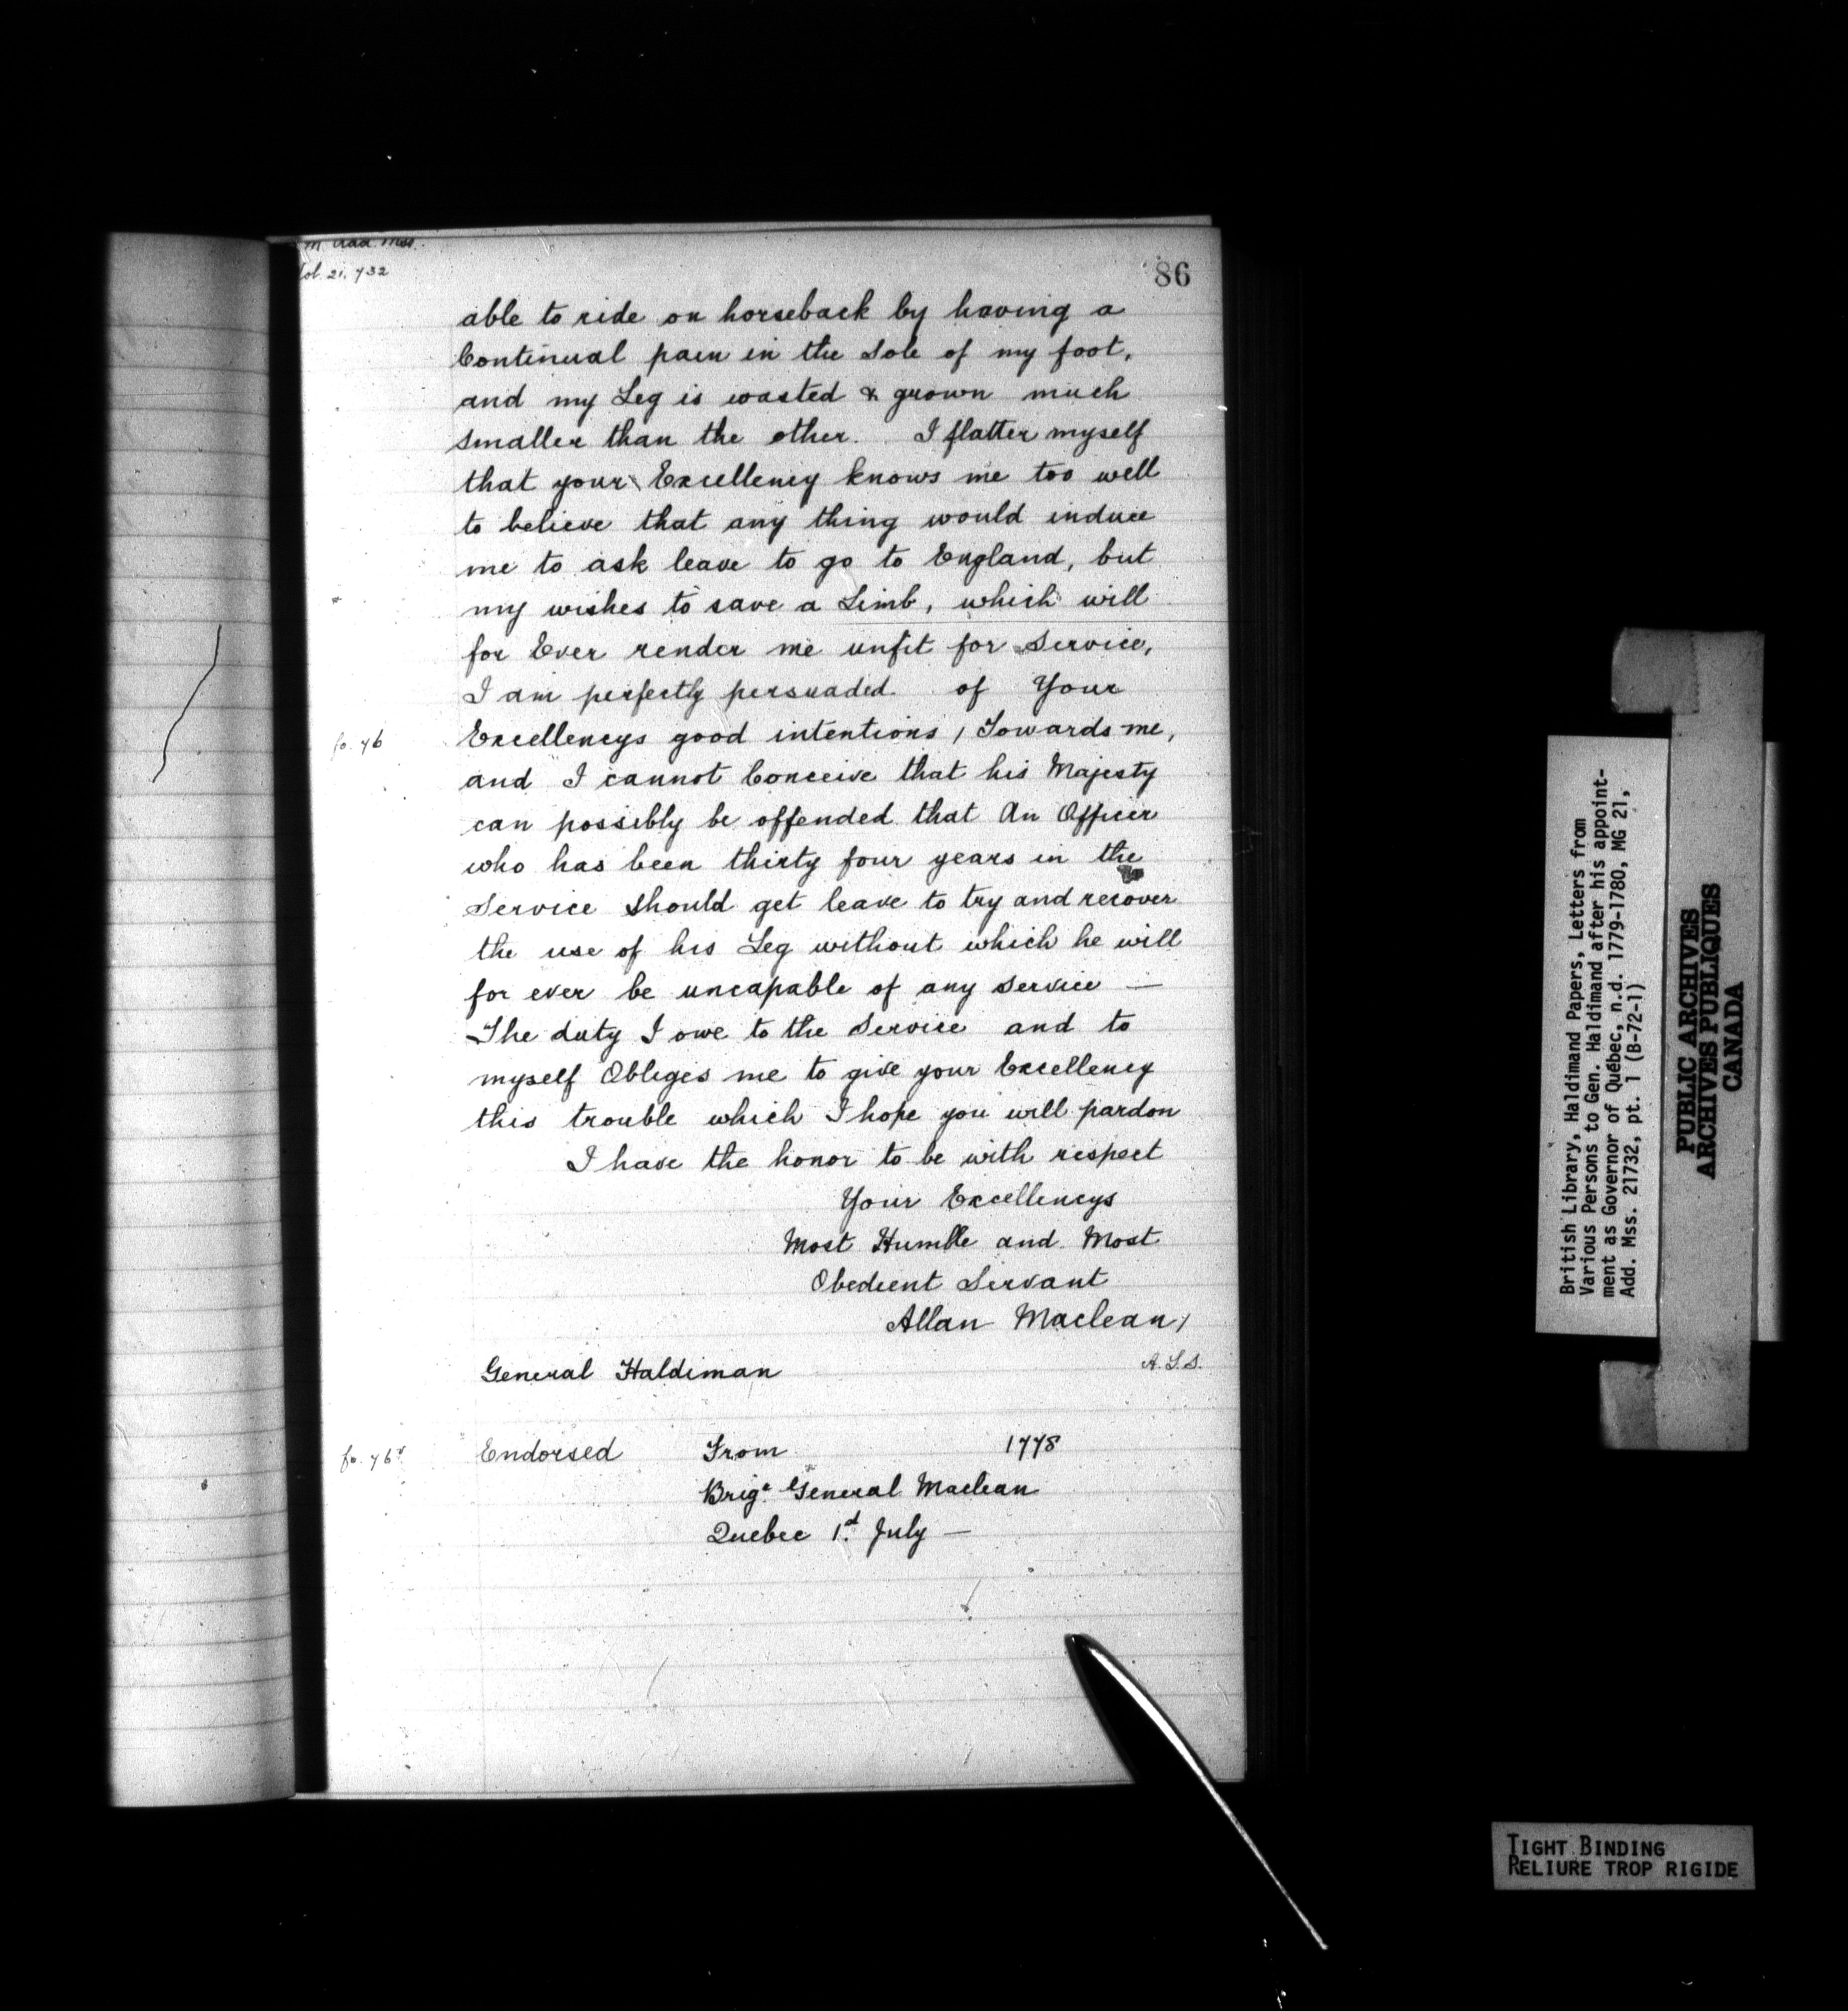 m Add. Mss.
Vol. 21,732
86
able to ride on horseback by having a
Continual pain in the Sole of my foot,
and my Leg is wasted & grown much
smaller than the other. I flatter myself
that your Excellency knows me too well
to believe that any thing would induce
me to ask leave to go to England, but
my wishes to save a Limb, which will
for Ever render me unfit for Service,
I am perfectly persuaded of Your
fo. 76
Excellencys good intentions / Towards me,
and I cannot Conceive that his Majesty
can possibly be offended that An Officer
who has been thirty four years in the
Service should get leave to try and recover
the use of his Leg without which he will
for ever be uncapable of any service —
The duty I owe to the Service and to
myself Obliges me to give your Excellency
this trouble which I hope you will pardon
I have the honor to be with respect
Your Excellencys
Most Humble and Most
Obedient Servant
Allan Maclean /
General Haldiman
A.L.S.
fo. 76v
Endorsed From 1778
Brigr General Maclean
Quebec 1.d July —
British Library, Haldimand Papers, Letters from
Various Persons to Gen. Haldimand after his appoint-
ment as Governor of Québec, n.d. 1779-1780, MG 21,
Add. Mss. 21732, pt. 1 (B-72-1)
PUBLIC ARCHIVES
ARCHIVES PUBLIQUES
CANADA
TIGHT BINDING
RELIURE TROP RIGIDE